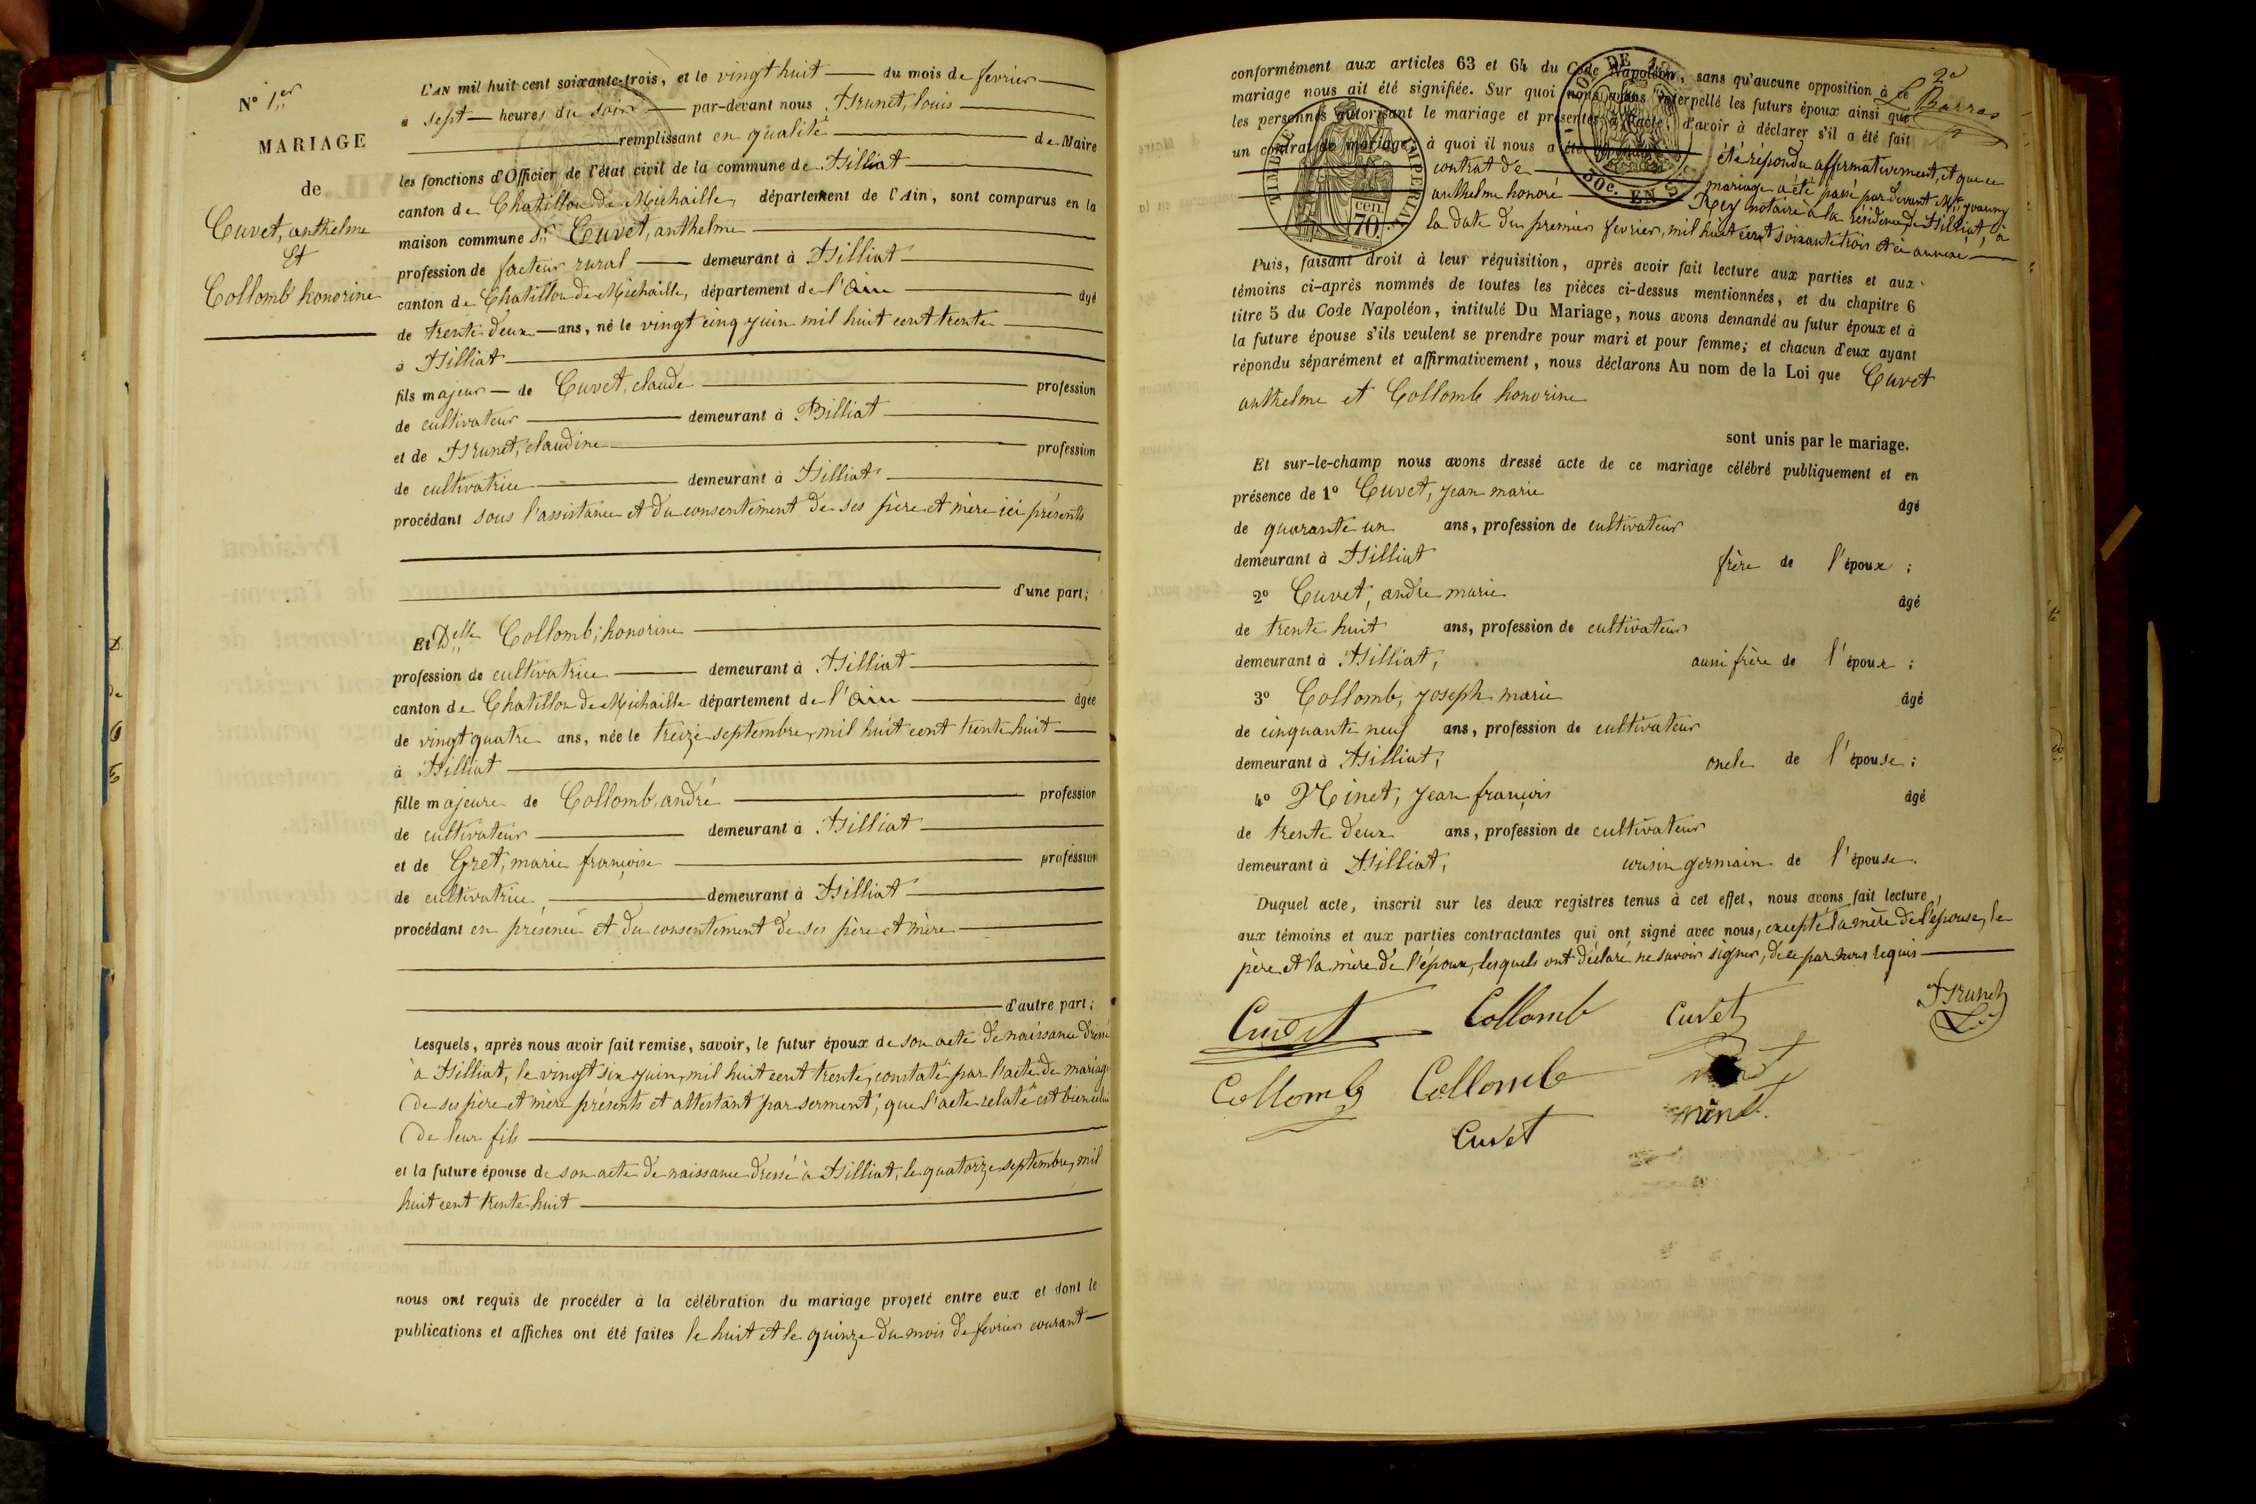 N° 1er
MARIAGE
de
Cuvet, anthelme
Et
Collomb honorine
L'AN mil huit cent soixante-trois, et le vingt huit du mois de fevrier
à sept heures du soir par-devant nous Brunet, louis
remplissant en qualité de Maire
les fonctions d'Officier de l'état civil de la commune de Billiat
canton de Chatillon de Michaille, département de l'Ain, sont comparus en la
maison commune Sr Cuvet, anthelme
profession de facteur rural demeurant à Billiat
canton de Chatillon de Michaille, département de l'Ain âgé
de trente deux ans, né le vingt cinq juin mil huit cent trente
à Billiat
fils majeur de Cuvet, claude profession
de cultivateur demeurant à Billiat
et de Brunet, claudine profession
de cultivatrice demeurant à Billiat
procédant sous l'assistance et du consentement de ses père et mère ici présents
d'une part;
Et Delle Collomb, honorine
profession de cultivatrice demeurant à Billiat
canton de Chatillon de Michaille département de l'Ain âgée
de vingt quatre ans, née le treize septembre, mil huit cent trente huit
à Billiat
fille majeure de Collomb, andré profession
de cultivateur demeurant à Billiat
et de Gret, marie françoise profession
de cultivatrice, demeurant à Billiat
procédant en présence et du consentement de ses père et mère
d'autre part;
Lesquels, après nous avoir fait remise, savoir, le futur époux de son acte de naissance dressé
à Billiat, le vingt six juin, mil huit cent trente, constaté par l'acte de mariage
de ses père et mère présents et attestant par serment, que l'acte relaté est bien celui
de leur fils
et la future épouse de son acte de naissance dressé à Billiat, le quatorze septembre, mil
huit cent trente huit
nous ont requis de procéder à la célébration du mariage projeté entre eux et dont le
publications et affiches ont été faites le huit et le quinze du mois de fevrier courant
2e
L. Barras
conformément aux articles 63 et 64 du Code Napoléon, sans qu'aucune opposition à ce
mariage nous ait été signifiée. Sur quoi nous avons interpellé les futurs époux ainsi que
les personnes autorisant le mariage et présentes à l'acte, d'avoir à déclarer s'il a été fait
un contrat de mariage, à quoi il nous a été répondu été répondu affirmativement, et que ce
contrat de mariage a été passé par devant Me
anthelme honoré Rey notaire à la résidence de Billiat, à
la date du premier fevrier, mil huit cent soixante trois et ci annexé
TIMBRE IMPERIAL
70 cen.
50c. EN SUS
Puis, faisant droit à leur réquisition, après avoir fait lecture aux parties et aux
témoins ci-après nommés de toutes les pièces ci-dessus mentionnées, et du chapitre 6
titre 5 du Code Napoléon, intitulé Du Mariage, nous avons demandé au futur époux et à
la future épouse s'ils veulent se prendre pour mari et pour femme; et chacun d'eux ayant
répondu séparément et affirmativement, nous déclarons Au nom de la Loi que Cuvet
anthelme et Collomb honorine
sont unis par le mariage.
Et sur-le-champ nous avons dressé acte de ce mariage célébré publiquement et en
présence de 1° Cuvet, jean marie âgé
de quarante un ans, profession de cultivateur
demeurant à Billiat frère de l'époux;
2° Cuvet, andre marie âgé
de trente huit ans, profession de cultivateur
demeurant à Billiat, aussi frère de l'époux;
3° Collomb, joseph marie âgé
de cinquante neuf ans, profession de cultivateur
demeurant à Billiat, oncle de l'épouse;
4° Ninet, jean françois âgé
de trente deux ans, profession de cultivateur
demeurant à Billiat, cousin germain de l'épouse.
Duquel acte, inscrit sur les deux registres tenus à cet effet, nous avons fait lecture
aux témoins et aux parties contractantes qui ont signé avec nous, excepté la mère de l'épouse, le
père et la mère de l'époux, lesquels ont déclaré ne savoir signer, de ce par nous requis
Cuvet Collomb Cuvet Brunet
Collomb Collomb
Cuvet ninet